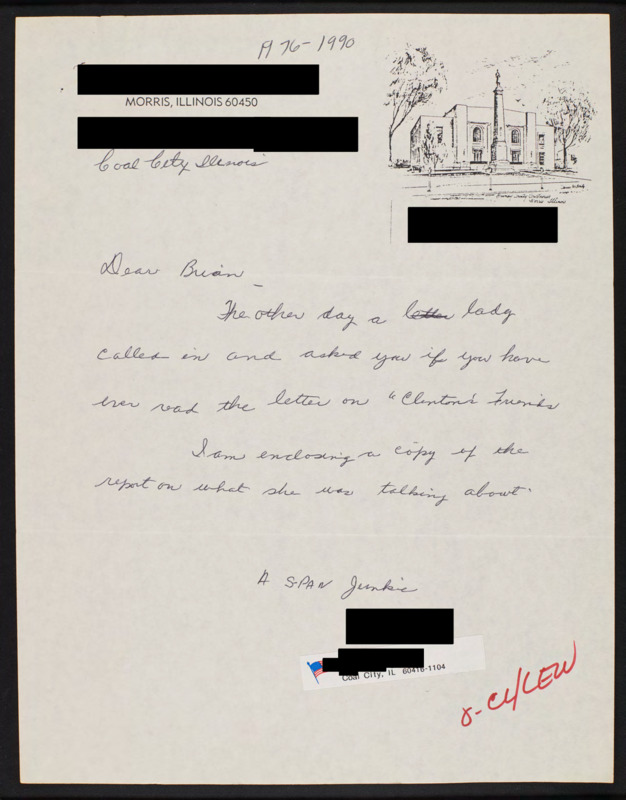 A 76-1990
MORRIS, ILLINOIS 60450
Coal City Illinois
Dear Brian –
The other day a letter lady
called in and asked you if you have
ever read the letter on "Clinton's Friends
I am enclosing a copy of the
report on what she was talking about.
A S-PAN Junkie
Coal City, IL 60416-1104